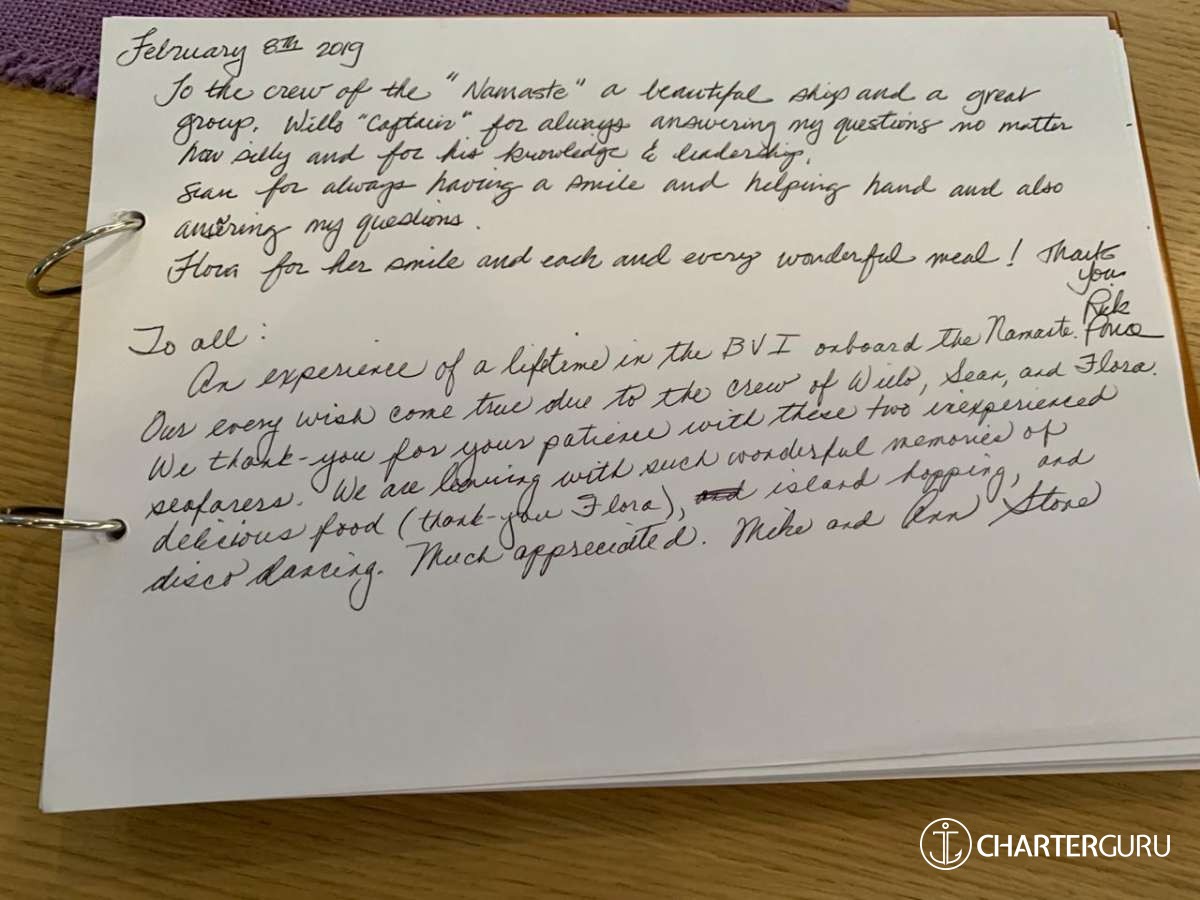 February 8th 2019
To the crew of the "Namaste" a beautiful ship and a great
group. Wills "Captain" for always answering my questions no matter
how silly and for his knowledge & leadership.
Sean for always having a smile and helping hand and also
answering my questions.
Flora for her smile and each and every wonderful meal! Thank
you
Rick
To all:
An experience of a lifetime in the BVI onboard the Namaste.
Our every wish come true due to the crew of Wills, Sean, and Flora.
We thank-you for your patience with these two inexperienced
seafarers. We are leaving with such wonderful memories of
delicious food (thank-you Flora), and island hopping, and
disco dancing. Much appreciated. Mike and Ann Stone
CHARTERGURU